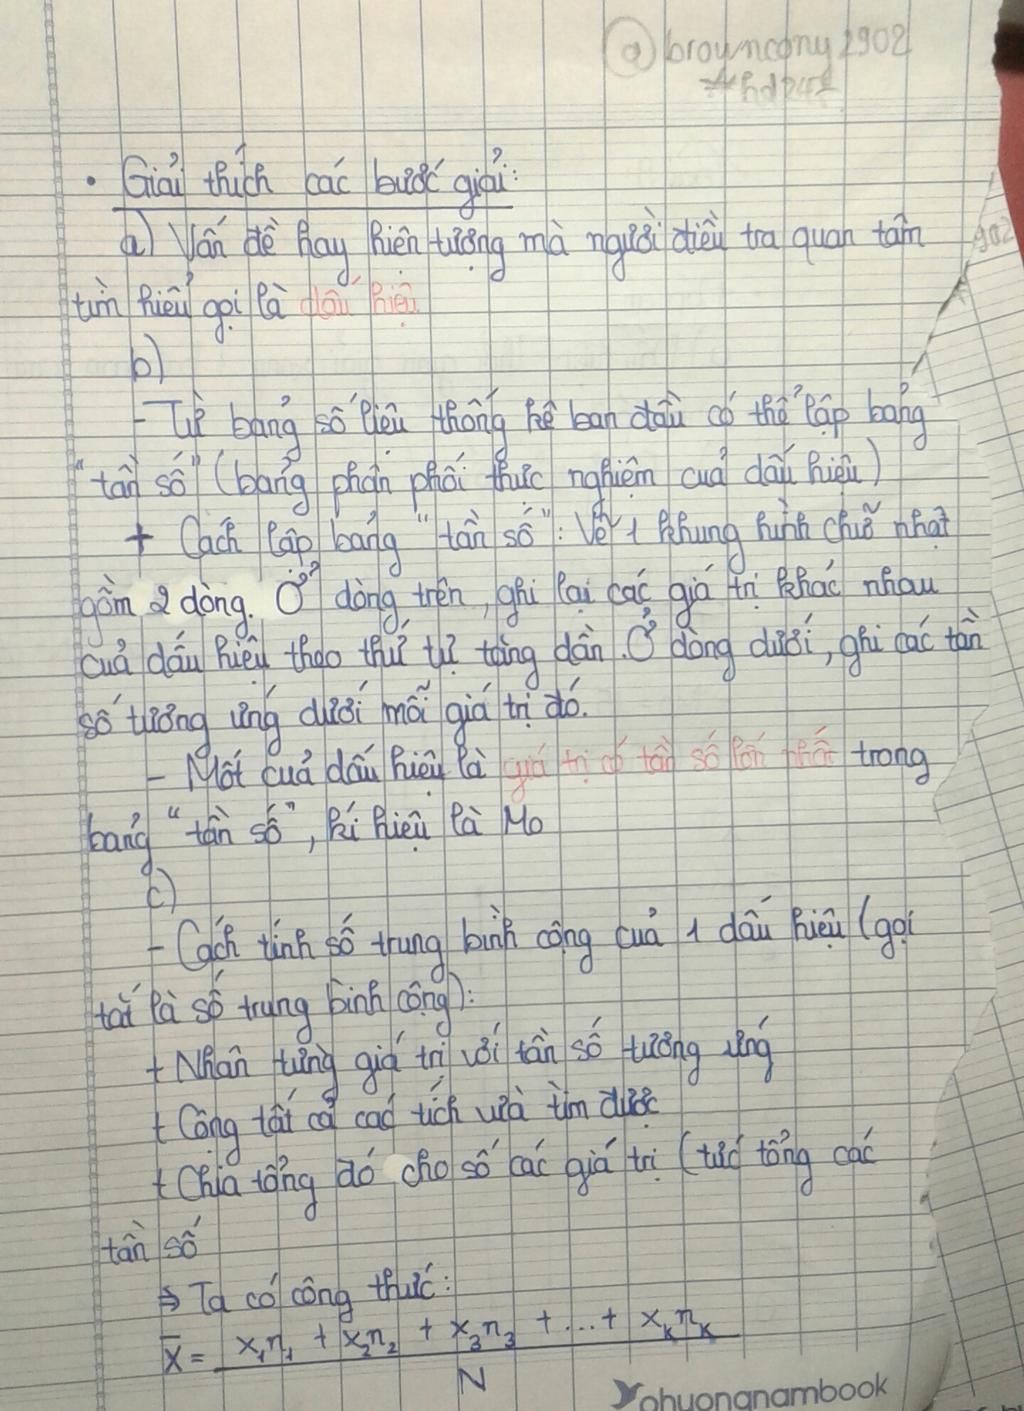 @browncony2902
• Giải thích các bước giải:
a) Vấn đề hay hiện tượng mà người điều tra quan tâm
tìm hiểu gọi là dấu hiệu
b)
- Từ bảng số liệu thống kê ban đầu có thể lập bảng
"tần số" (bảng phân phối thực nghiệm của dấu hiệu)
+ Cách lập bảng "tần số": Vẽ 1 khung hình chữ nhật
gồm 2 dòng. Ở dòng trên, ghi lại các giá trị khác nhau
của dấu hiệu theo thứ tự tăng dần. Ở dòng dưới, ghi các tần
số tương ứng dưới mỗi giá trị đó.
- Mốt của dấu hiệu là giá trị có tần số lớn nhất trong
bảng "tần số", kí hiệu là Mo
c)
- Cách tính số trung bình cộng của 1 dấu hiệu (gọi
tắt là số trung bình cộng):
+ Nhân từng giá trị với tần số tương ứng
+ Cộng tất cả các tích vừa tìm được
+ Chia tổng đó cho số các giá trị (tức tổng các
tần số
⇒ Ta có công thức:
X̄ = x₁n₁ + x₂n₂ + x₃n₃ + ... + xₖnₖ
N
phuongnambook